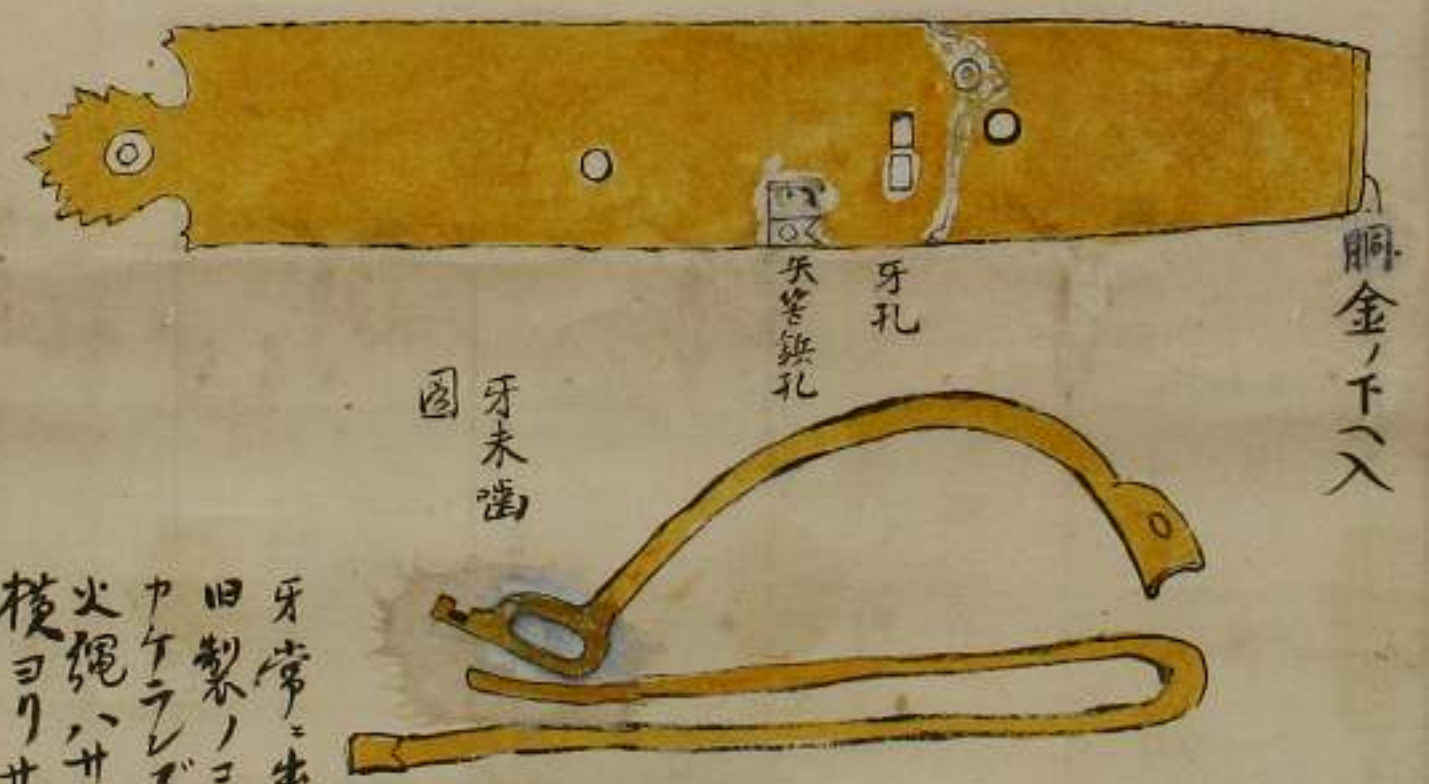 胴金ノ下ヘ入
牙孔
矢筈鋲孔
牙未噛
図
牙常ニ
旧製ノコ
カケラレズ
火縄ハサ
横ヨリサ